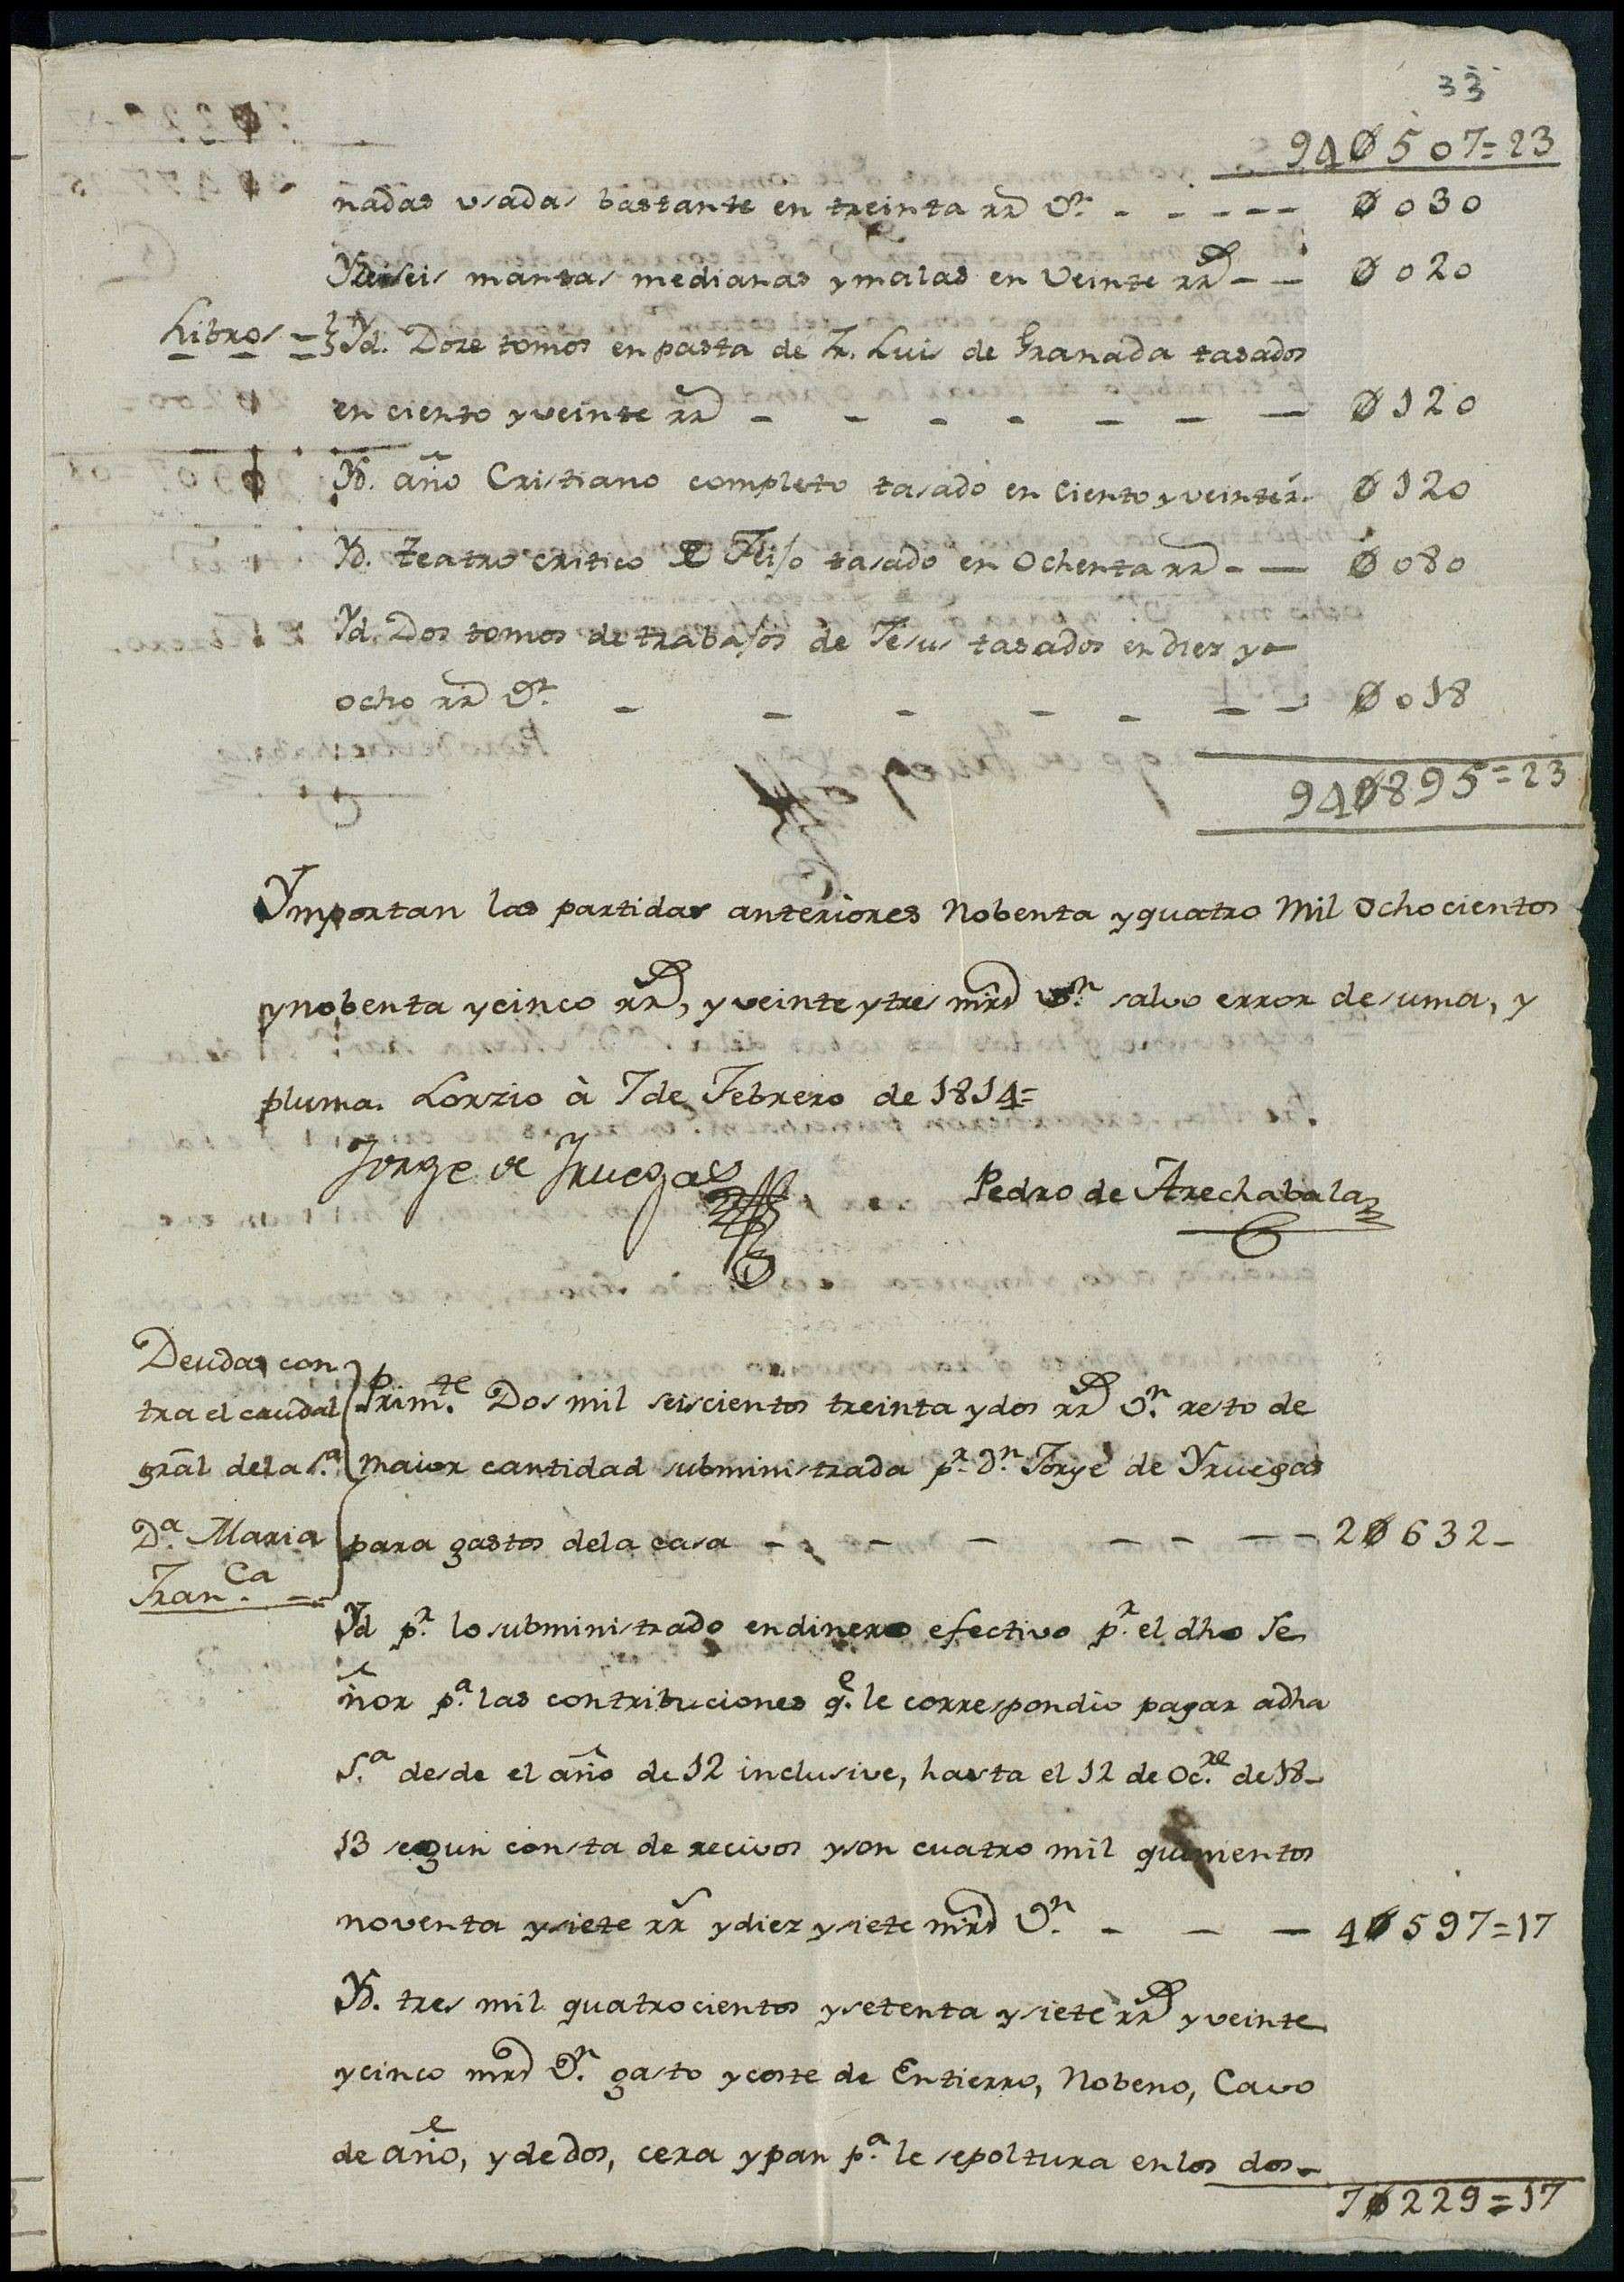 33
94Ø507=23
nadas usadas bastante en treinta rr͞ V.n - - - - - Ø030
Yd. seis mantas medianas y malas en Veinte rr͞ - - Ø020
Libros = Yd. Doze tomos en pasta de Fr. Luis de Granada tasados
en ciento y veinte rr͞ - - - - - - - Ø120
Yd. año Cristiano completo tasado en ciento y veinte r.s Ø120
Yd. teatro critico de Feijo tasado en Ochenta rr͞ - - Ø080
Yd. Dos tomos de trabajos de Jesus tasados en diez y -
ocho rr͞ V.n - - - - - - - Ø018
94Ø895=23
Ymportan las partidas anteriores Nobenta y quatro Mil Ochocientos
y nobenta y cinco rr͞, y veinte y tres mr͞s V.n salvo error de suma, y
pluma. Lorzio à 7 de Febrero de 1814=
Jorge de Yruegas
Pedro de Arechabala
Deudas con
tra el caudal
gràl de la S.a
D.a Maria
Fran.ca - -
Prim.te Dos mil seiscientos treinta y dos rr͞ V.n resto de
maior cantidad subministrada p.r d.n Jorge de Yruegas
para gastos de la casa - - - - - - - 2Ø632-
Yd p.r lo subministrado en dinero efectivo p.r el dho Se
ñor p.a las contribuciones q.e le correspondio pagar a dha
S.a desde el año de 12 inclusive, hasta el 12 de Oc.re de 18-
13 segun consta de recivos y son cuatro mil quinientos
noventa y siete rr͞ y diez y siete mr͞s V.n - - - 4Ø597=17
Yd. tres mil quatrocientos y setenta y siete rr͞ y veinte
y cinco mr͞s V.n gasto y coste de Entierro, Nobeno, Cavo
de año, y de dos, cera y pan p.a le sepoltura en los dos -
7Ø229=17